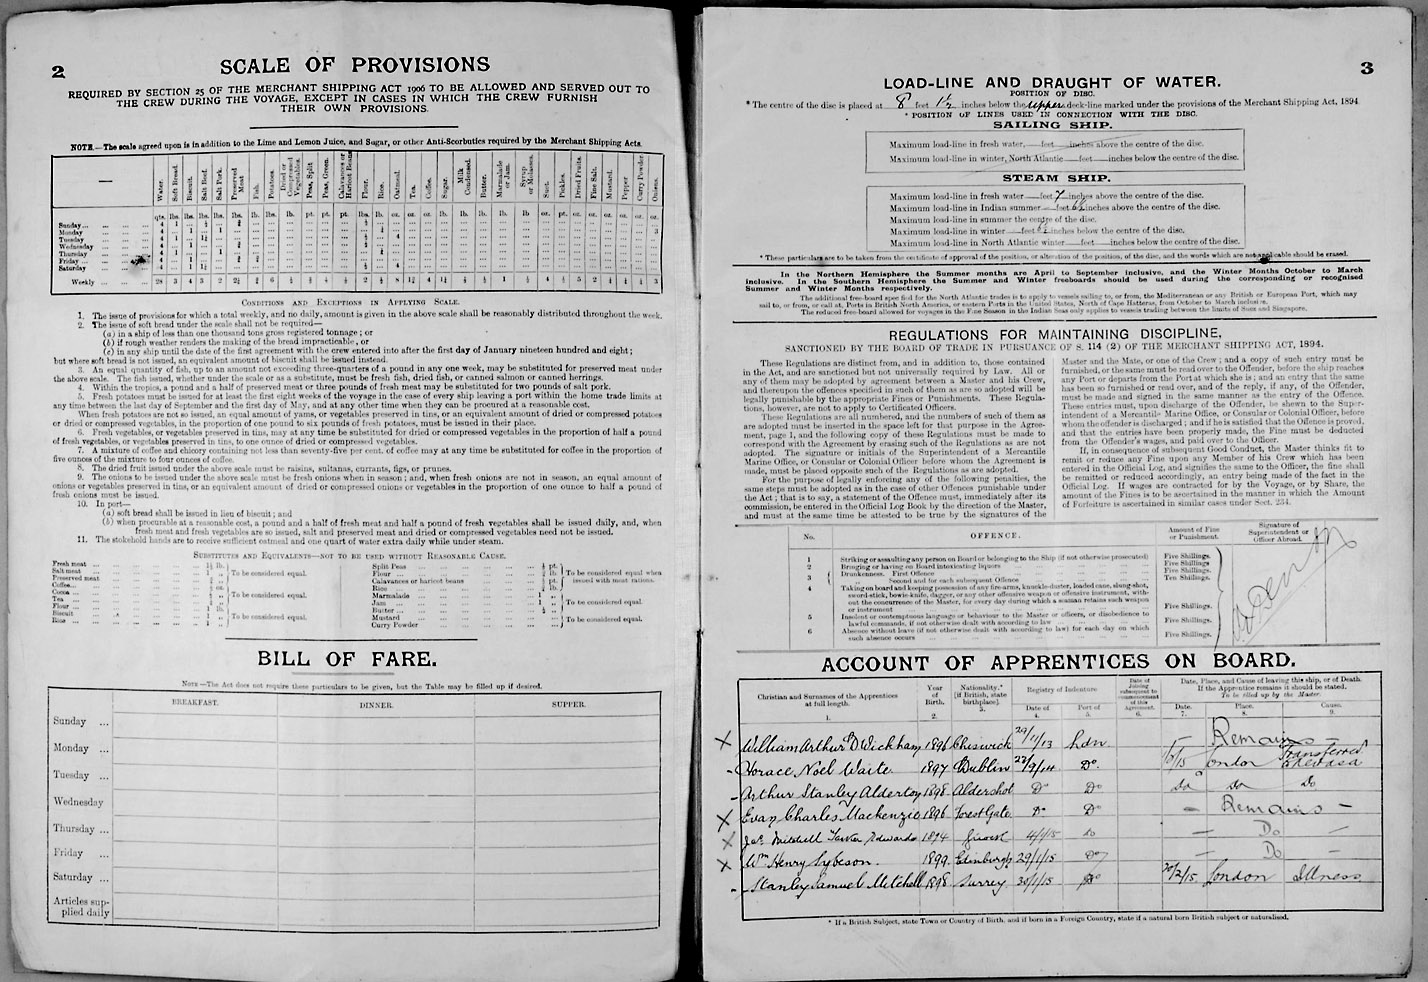 2
SCALE OF PROVISIONS
REQUIRED BY SECTION 25 OF THE MERCHANT SHIPPING ACT 1906 TO BE ALLOWED AND SERVED OUT TO
THE CREW DURING THE VOYAGE, EXCEPT IN CASES IN WHICH THE CREW FURNISH
THEIR OWN PROVISIONS.
NOTE.—The scale agreed upon is in addition to the Lime and Lemon Juice, and Sugar, or other Anti-Scorbutics required by the Merchant Shipping Acts.
— Water. Soft Bread. Biscuit. Salt Beef. Salt Pork. Preserved Meat Fish. Potatoes. Dried or Compressed Vegetables. Peas, Split Peas, Green. Calavances or Haricot Beans Flour. Rice. Oatmeal. Tea. Coffee. Sugar. Milk Condensed. Butter. Marmalade or Jam. Syrup or Molasses. Suet. Pickles. Dried Fruits. Fine Salt. Mustard. Pepper Curry Powder. Onions.
Sunday
Monday
Tuesday
Wednesday
Thursday
Friday
Saturday
Weekly
CONDITIONS AND EXCEPTIONS IN APPLYING SCALE.
1. The issue of provisions for which a total weekly, and no daily, amount is given in the above scale shall be reasonably distributed throughout the week.
2. The issue of soft bread under the scale shall not be required—
(a) in a ship of less than one thousand tons gross registered tonnage; or
(b) if rough weather renders the making of the bread impracticable, or
(c) in any ship until the date of the first agreement with the crew entered into after the first day of January nineteen hundred and eight;
but where soft bread is not issued, an equivalent amount of biscuit shall be issued instead.
3. An equal quantity of fish, up to an amount not exceeding three-quarters of a pound in any one week, may be substituted for preserved meat under
the above scale. The fish issued, whether under the scale or as a substitute, must be fresh fish, dried fish, or canned salmon or canned herrings.
4. Within the tropics, a pound and a half of preserved meat or three pounds of fresh meat may be substituted for two pounds of salt pork.
5. Fresh potatoes must be issued for at least the first eight weeks of the voyage in the case of every ship leaving a port within the home trade limits at
any time between the last day of September and the first day of May, and at any other time when they can be procured at a reasonable cost.
When fresh potatoes are not so issued, an equal amount of yams, or vegetables preserved in tins, or an equivalent amount of dried or compressed potatoes
or dried or compressed vegetables, in the proportion of one pound to six pounds of fresh potatoes, must be issued in their place.
6. Fresh vegetables, or vegetables preserved in tins, may at any time be substituted for dried or compressed vegetables in the proportion of half a pound
of fresh vegetables, or vegetables preserved in tins, to one ounce of dried or compressed vegetables.
7. A mixture of coffee and chicory containing not less than seventy-five per cent. of coffee may at any time be substituted for coffee in the proportion of
five ounces of the mixture to four ounces of coffee.
8. The dried fruit issued under the above scale must be raisins, sultanas, currants, figs, or prunes.
9. The onions to be issued under the above scale must be fresh onions when in season; and, when fresh onions are not in season, an equal amount of
onions or vegetables preserved in tins, or an equivalent amount of dried or compressed onions or vegetables in the proportion of one ounce to half a pound of
fresh onions must be issued.
10. In port—
(a) soft bread shall be issued in lieu of biscuit; and
(b) when procurable at a reasonable cost, a pound and a half of fresh meat and half a pound of fresh vegetables shall be issued daily, and, when
fresh meat and fresh vegetables are so issued, salt and preserved meat and dried or compressed vegetables need not be issued.
11. The stokehold hands are to receive sufficient oatmeal and one quart of water extra daily while under steam.
SUBSTITUTES AND EQUIVALENTS—NOT TO BE USED WITHOUT REASONABLE CAUSE.
Fresh meat
Salt meat
Preserved meat
To be considered equal.
Coffee
Cocoa
Tea
To be considered equal.
Flour
Biscuit
Rice
To be considered equal.
Split Peas
Flour
Calavances or haricot beans
Rice
To be considered equal when issued with meat rations.
Marmalade
Jam
Butter
To be considered equal.
Mustard
Curry Powder
To be considered equal.
BILL OF FARE.
NOTE—The Act does not require these particulars to be given, but the Table may be filled up if desired.
BREAKFAST. DINNER. SUPPER.
Sunday ...
Monday ...
Tuesday ...
Wednesday
Thursday ...
Friday ...
Saturday ...
Articles sup-
plied daily
3
LOAD-LINE AND DRAUGHT OF WATER.
POSITION OF DISC.
* The centre of the disc is placed at 8 feet 1½ inches below the upper deck-line marked under the provisions of the Merchant Shipping Act, 1894
* POSITION OF LINES USED IN CONNECTION WITH THE DISC.
SAILING SHIP.
Maximum load-line in fresh water, feet inches above the centre of the disc.
Maximum load-line in winter, North Atlantic feet inches below the centre of the disc.
STEAM SHIP.
Maximum load-line in fresh water feet 7 inches above the centre of the disc.
Maximum load-line in Indian summer feet 6½ inches above the centre of the disc.
Maximum load-line in summer the centre of the disc.
Maximum load-line in winter feet inches below the centre of the disc.
Maximum load-line in North Atlantic winter feet inches below the centre of the disc.
* These particulars are to be taken from the certificate of approval of the position, or alteration of the position, of the disc, and the words which are not applicable should be erased.
In the Northern Hemisphere the Summer months are April to September inclusive, and the Winter Months October to March
inclusive. In the Southern Hemisphere the Summer and Winter freeboards should be used during the corresponding or recognised
Summer and Winter Months respectively.
The additional free-board specified for the North Atlantic trades is to apply to vessels sailing to, or from, the Mediterranean or any British or European Port, which may
sail to, or from, or call at, Ports in British North America, or eastern Ports in the United States, North of Cape Hatteras, from October to March inclusive.
The reduced free-board allowed for voyages in the Fine Season in the Indian Seas only applies to vessels trading between the limits of Suez and Singapore.
REGULATIONS FOR MAINTAINING DISCIPLINE,
SANCTIONED BY THE BOARD OF TRADE IN PURSUANCE OF S. 114 (2) OF THE MERCHANT SHIPPING ACT, 1894.
These Regulations are distinct from, and in addition to, those contained
in the Act, and are sanctioned but not universally required by Law. All or
any of them may be adopted by agreement between a Master and his Crew,
and thereupon the offences specified in such of them as are so adopted will be
legally punishable by the appropriate Fines or Punishments. These Regula-
tions, however, are not to apply to Certificated Officers.
These Regulations are all numbered, and the numbers of such of them as
are adopted must be inserted in the space left for that purpose in the Agree-
ment, page 1, and the following copy of these Regulations must be made to
correspond with the Agreement by erasing such of the Regulations as are not
adopted. The signature or initials of the Superintendent of a Mercantile
Marine Office, or Consular or Colonial Officer before whom the Agreement is
made, must be placed opposite such of the Regulations as are adopted.
For the purpose of legally enforcing any of the following penalties, the
same steps must be adopted as in the case of other Offences punishable under
the Act; that is to say, a statement of the Offence must, immediately after its
commission, be entered in the Official Log Book by the direction of the Master,
and must at the same time be attested to be true by the signatures of the
Master and the Mate, or one of the Crew; and a copy of such entry must be
furnished, or the same must be read over to the Offender, before the ship reaches
any Port or departs from the Port at which she is; and an entry that the same
has been so furnished or read over, and of the reply, if any, of the Offender,
must be made and signed in the same manner as the entry of the Offence.
These entries must, upon discharge of the Offender, be shewn to the Super-
intendent of a Mercantile Marine Office, or Consular or Colonial Officer, before
whom the offender is discharged; and if he is satisfied that the Offence is proved,
and that the entries have been properly made, the Fine must be deducted
from the Offender's wages, and paid over to the Officer.
If, in consequence of subsequent Good Conduct, the Master thinks fit to
remit or reduce any Fine upon any Member of his Crew which has been
entered in the Official Log, and signifies the same to the Officer, the fine shall
be remitted or reduced accordingly, an entry being made of the fact in the
Official Log. If wages are contracted for by the Voyage, or by Share, the
amount of the Fines is to be ascertained in the manner in which the Amount
of Forfeiture is ascertained in similar cases under Sect. 234.
No. OFFENCE. Amount of Fine or Punishment. Signature of Superintendent or Officer Abroad.
1 Striking or assaulting any person on Board or belonging to the Ship (if not otherwise prosecuted) Five Shillings.
2 Bringing or having on Board intoxicating liquors Five Shillings
3 Drunkenness. First Offence Five Shillings.
Second and for each subsequent Offence Ten Shillings.
4 Taking on board and keeping possession of any fire-arms, knuckle-duster, loaded cane, slung-shot,
sword-stick, bowie-knife, dagger, or any other offensive weapon or offensive instrument, with-
out the concurrence of the Master, for every day during which a seaman retains such weapon
or instrument Five Shillings.
5 Insolent or contemptuous language or behaviour to the Master or officers, or disobedience to
lawful commands, if not otherwise dealt with according to law Five Shillings.
6 Absence without leave (if not otherwise dealt with according to law) for each day on which
such absence occurs Five Shillings.
ACCOUNT OF APPRENTICES ON BOARD.
Christian and Surnames of the Apprentices at full length. 1. Year of Birth. 2. Nationality.* [If British, state birthplace]. 3. Registry of Indenture Date of 4. Port of 5. Date of Joining subsequent to commencement of this Agreement. 6. Date, Place, and Cause of leaving this ship, or of Death. If the Apprentice remains it should be stated. To be filled up by the Master. Date. 7. Place. 8. Cause. 9.
X William Arthur D Wickham 1896 Chiswick 29/11/13 Ldn — Remains —
- Horace Noel Waite 1897 Dublin 22/9/14 Do. London Transferred
- Arthur Stanley Alderton 1898 Aldershot Do Do Do Do Do
X Evan Charles Mackenzie 1896 Forest Gate Do Do — Remains —
X Jas. Mitchell Edwards 1894 4/1/15 Do — Do —
X Wm Henry Sybeson. 1899 Edinburgh 29/1/15 Do — Do —
- Stanley Samuel Mitchell 1898 Surrey 30/1/15 Do 20/2/15 London Illness
* If a British Subject, state Town or Country of Birth, and if born in a Foreign Country, state if a natural born British subject or naturalised.